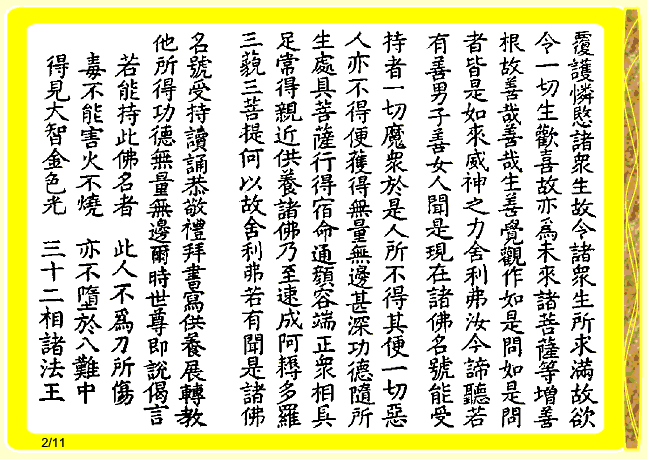 覆護憐愍諸眾生故令諸眾生所求滿故欲
令一切生歡喜故亦為未來諸菩薩等增善
根故善哉善哉生善覺觀作如是問如是問
者皆是如來威神之力舍利弗汝今諦聽若
有善男子善女人聞是現在諸佛名號能受
持者一切魔眾於是人所不得其便一切惡
人亦不得便獲得無量無邊甚深功德隨所
生處具菩薩行得宿命通顏容端正眾相具
足常得親近供養諸佛乃至速成阿耨多羅
三藐三菩提何以故舍利弗若有聞是諸佛
名號受持讀誦恭敬禮拜書寫供養展轉教
他所得功德無量無邊爾時世尊即說偈言
若能持此佛名者 此人不為刀所傷
毒不能害火不燒 亦不墮於八難中
得見大智金色光 三十二相諸法王
2/11